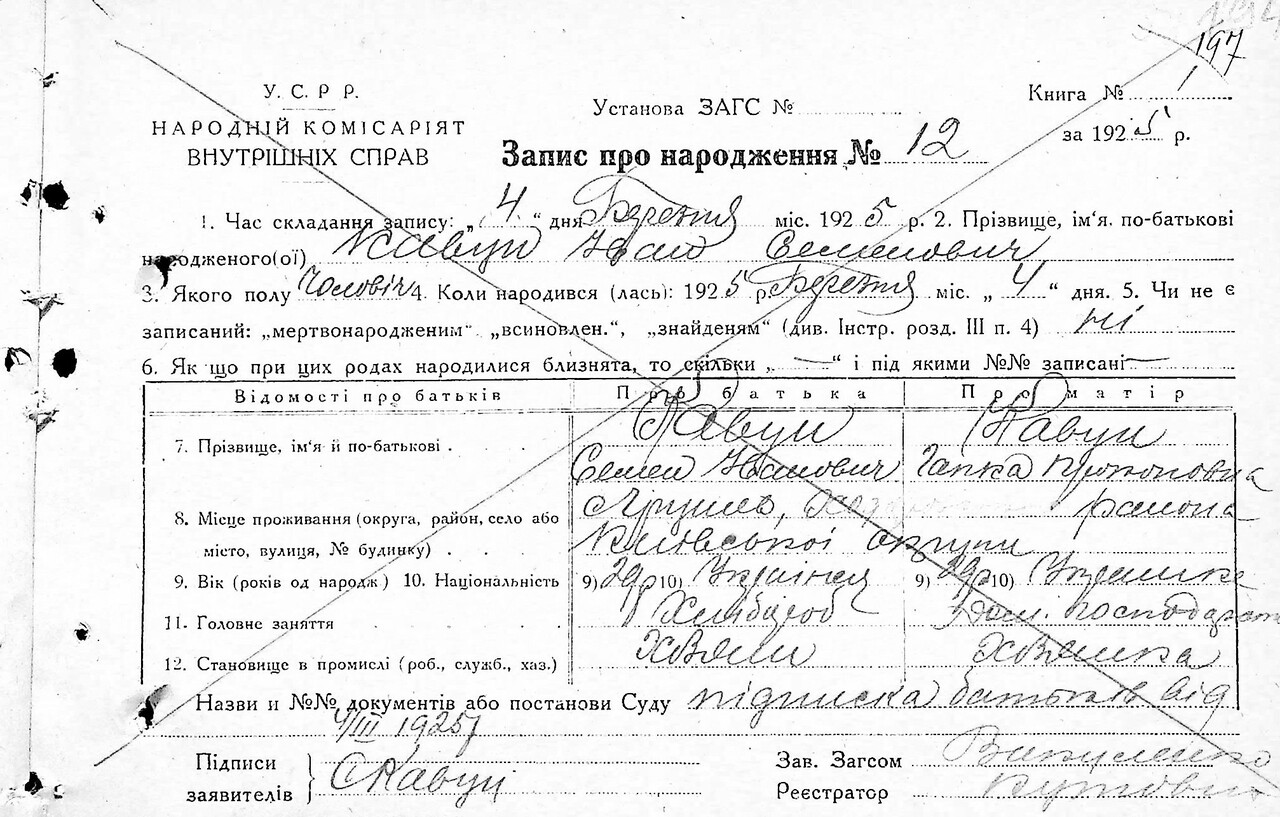 197
У. С. Р. Р.
НАРОДНІЙ КОМІСАРІЯТ
ВНУТРІШНІХ СПРАВ
Установа ЗАГС №
Книга № 1
за 1925 р.
Запис про народження № 12
1. Час складання запису: „ 4. “ дня Березня міс. 1925 р. 2. Прізвище, ім'я. по-батькові
народженого(ої) Кавун Иван Семенович
3. Якого полу Чоловіч 4. Коли народився (лась): 1925 р. Березня міс. „ 4 “ дня. 5. Чи не є
записаний: „мертвонародженим“ „всиновлен.“, „знайденям“ (див. Інстр. розд. III п. 4) ні
6. Як що при цих родах народилися близнята, то скільки „ — “ і під якими №№ записані —
Відомості про батьків Про батька Про матір
7. Прізвище, ім'я й по-батькові . Кавун Кавун
Семен Иванович Гапка Прокоповна
8. Місце проживання (округа, район, село або Ярушев, района
місто, вулиця, № будинку) . Київської округи
9. Вік (років од народж) 10. Національність 9) 29р 10) Українця 9) 29р 10) Украинка
11. Головне заняття Хлібороб Дом. господарст
12. Становище в промислі (роб., служб., хаз.) Хозяин Хозяшка
Назви и №№ документів або постанови Суду підписка батьків від
4/III 1925
Підписи
заявителів } С Кавун
Зав. Загсом
Реєстратор